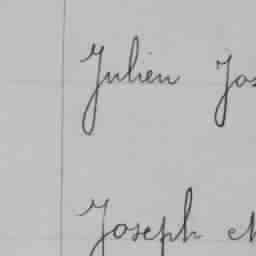 Julien Jos
Joseph et